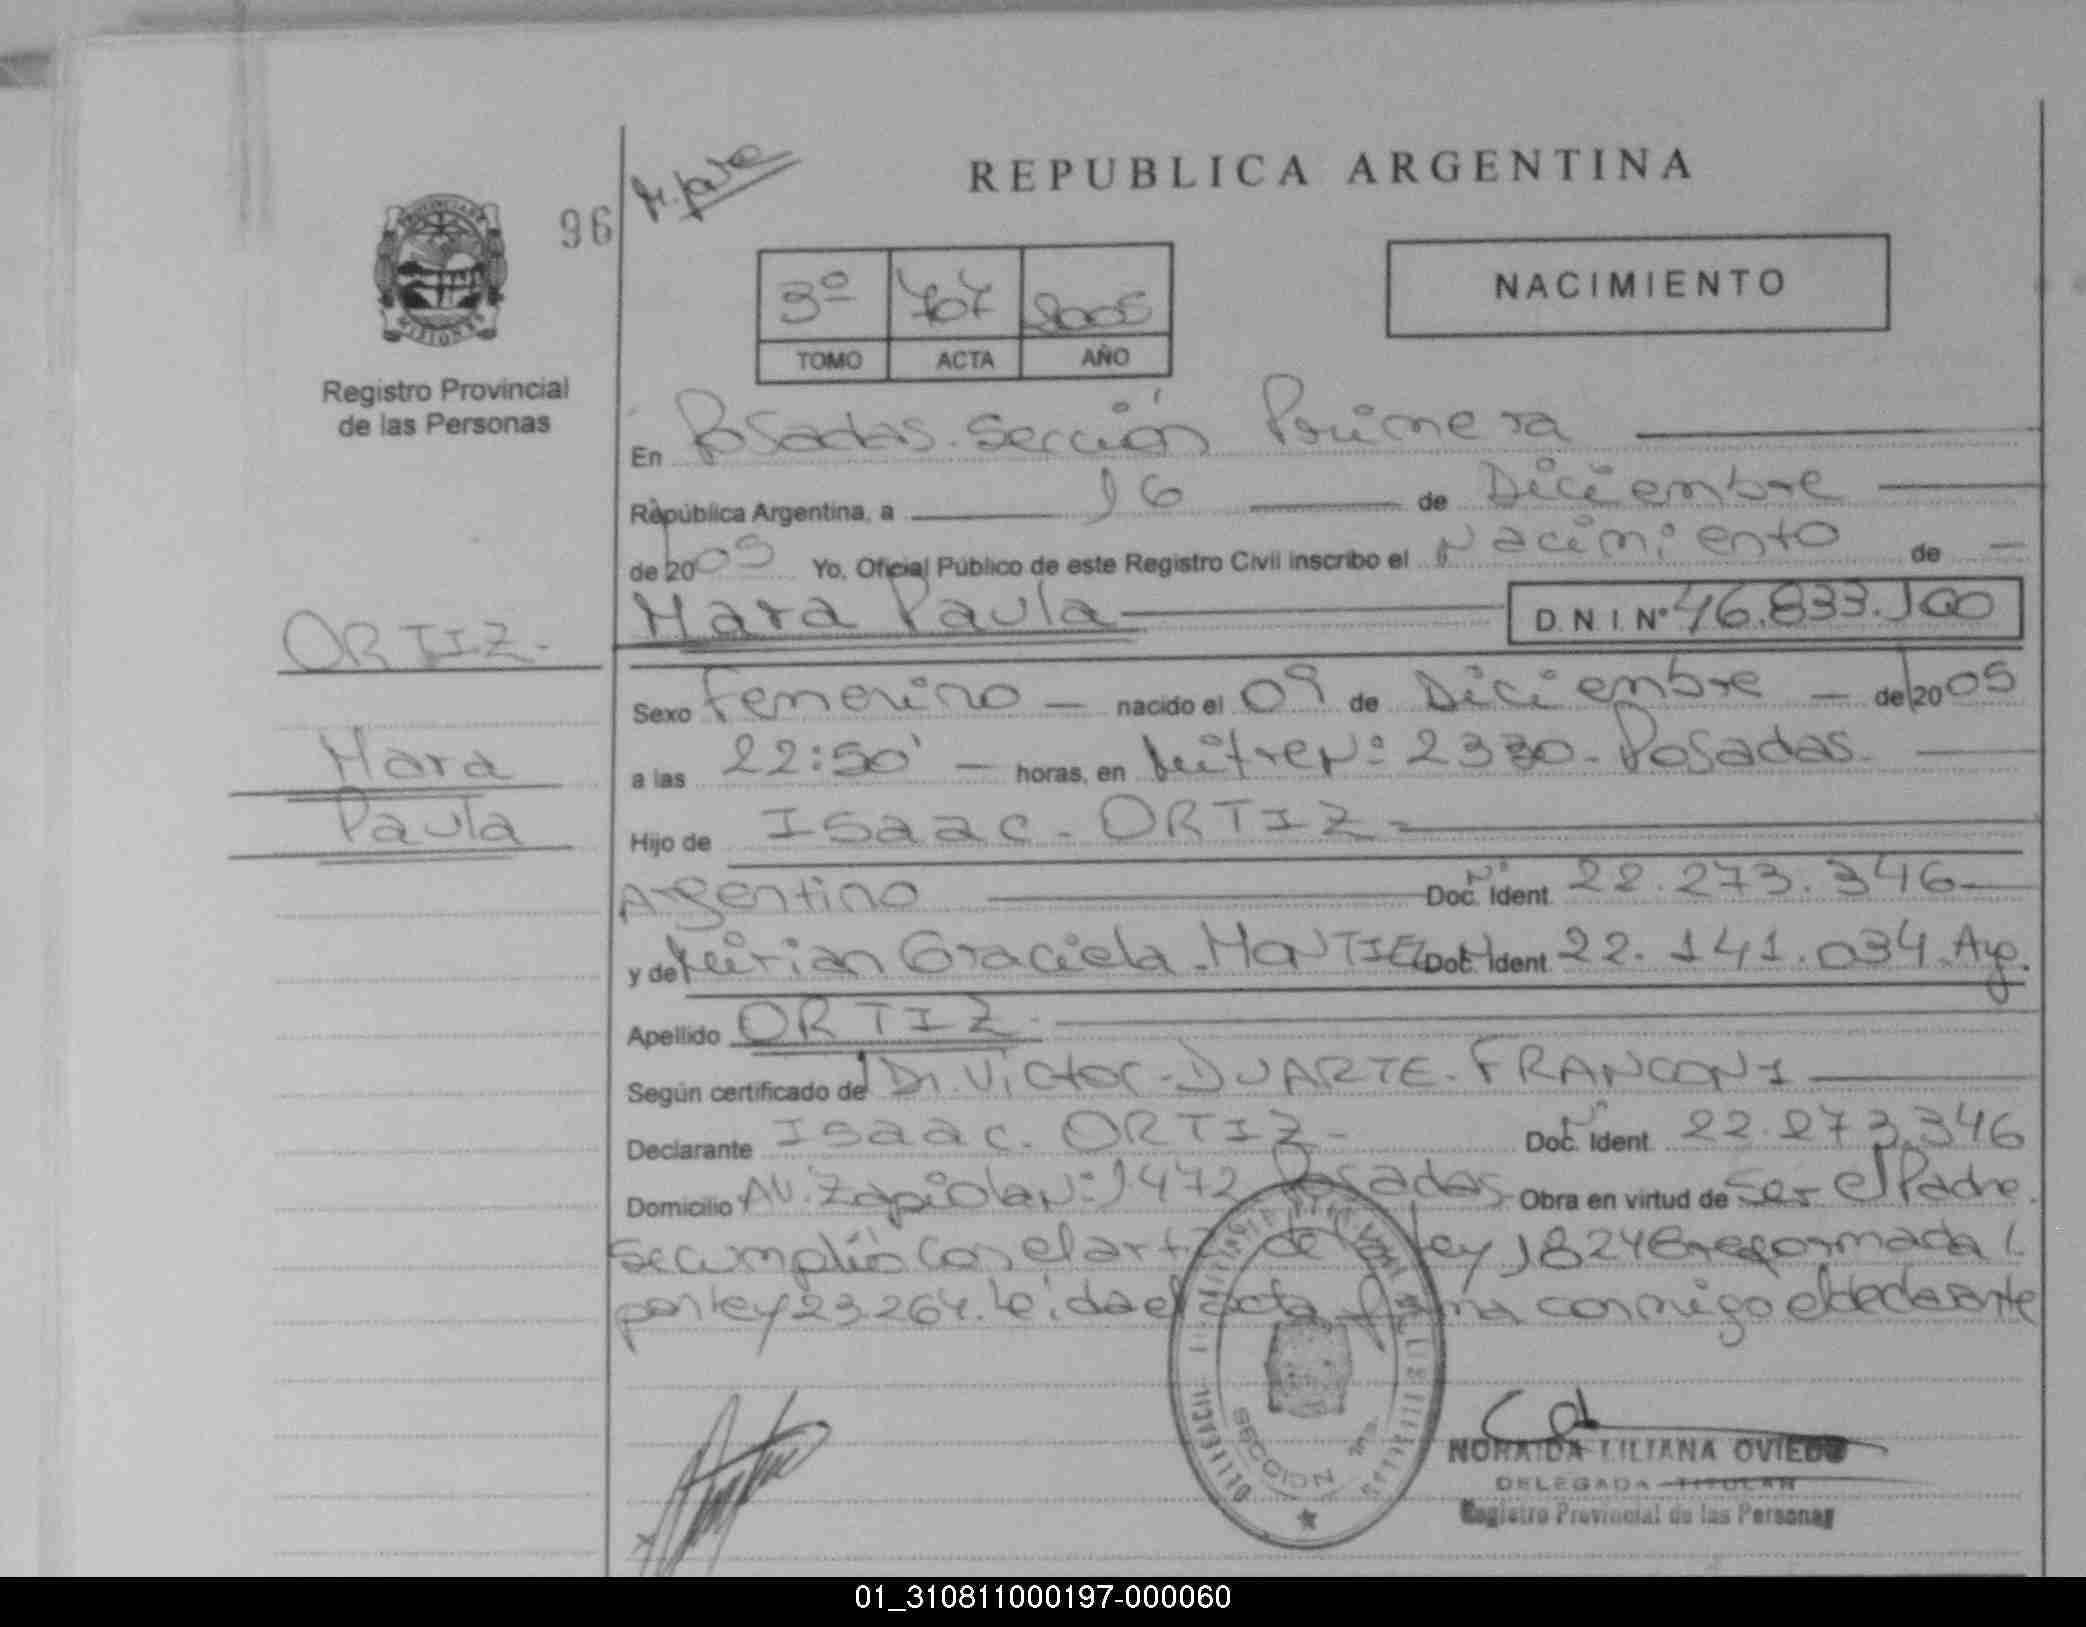 REPUBLICA ARGENTINA
96
NACIMIENTO
3º 707 2005
TOMO ACTA AÑO
PROVINCIA DE
MISIONES
Registro Provincial
de las Personas
En Posadas. Sección Primera
República Argentina, a 16 de Diciembre
de 2005 Yo, Oficial Público de este Registro Civil inscribo el Nacimiento de
Mara Paula D.N.I. Nº 46.833.100
ORTIZ.
Sexo Femenino nacido el 09 de Diciembre de 2005
Mara
a las 22:50' horas, en Mitre Nº 2330. Posadas.
Paula
Hijo de Isaac. ORTIZ.
Argentino Doc. Nº Ident. 22.273.346
y de Mirian Graciela. MONTIEL Doc. Nº Ident. 22.141.034. Arg.
Apellido ORTIZ.
Según certificado de Dr. Victor. DUARTE. FRANCONI
Declarante Isaac. ORTIZ. Doc. Nº Ident. 22.273.346
Domicilio AV. Zapiola Nº 1472 Posadas. Obra en virtud de Ser el Padre.
Se cumplió con el art. de ley 18248 reformada
por ley 23.264. Leída el acta firma conmigo el declarante
SECCION
NORAIDA LILIANA OVIEDO
DELEGADA TITULAR
Registro Provincial de las Personas
01_310811000197-000060